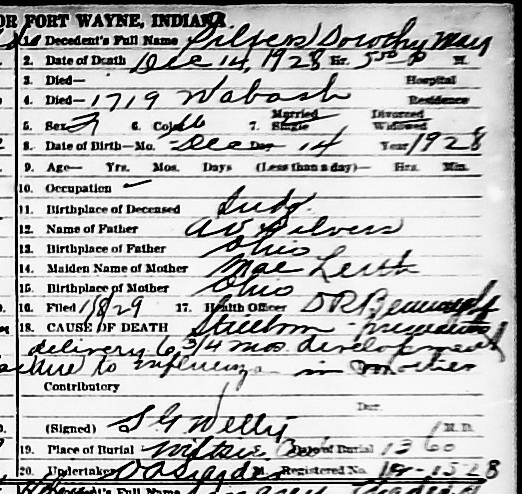 OR FORT WAYNE, INDIANA
1. Decedent's Full Name Pilvers Dorothy May
2. Date of Death Dec 14, 1928 Hr. 5 50 P M.
3. Died— Hospital
4. Died—1719 Wabash Residence
5. Sex F 6. Col. W 7. Married Single Divorced Widowed
8. Date of Birth—Mo. Dec Day 14 Year 1928
9. Age— Yrs. Mos. Days (Less than a day)— Hrs. Min.
10. Occupation —
11. Birthplace of Deceased Indg.
12. Name of Father Pilvers
13. Birthplace of Father Ohio
14. Maiden Name of Mother Mae Leith
15. Birthplace of Mother Ohio
16. Filed 1/8/29 17. Health Officer
18. CAUSE OF DEATH Stillborn - premature
delivery 6 3/4 mos. development
to influenza in mother
Contributory
Dur.
(Signed) S G Welty M. D.
19. Place of Burial Date of Burial
20. Undertaker Registered No.
Decedent's Full Name